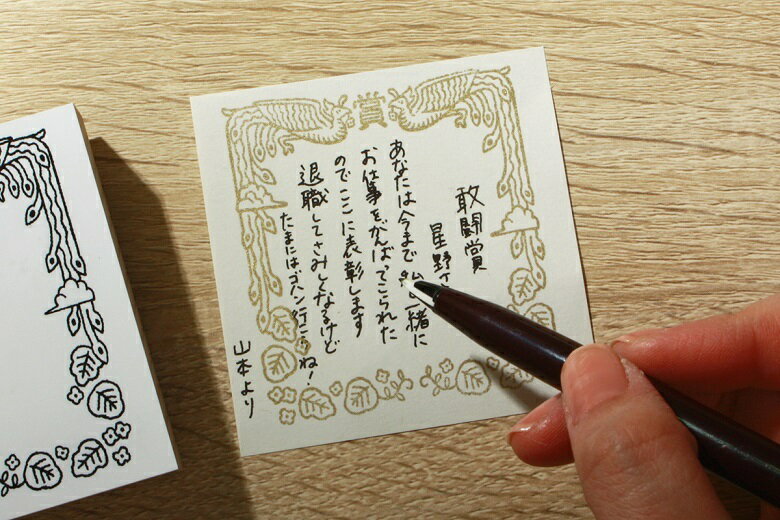 賞
敢闘賞
星野
あなたは今まで 一緒に
お仕事をがんばってこられた
のでここに表彰します
退職してさみしくなるけど
たまにはゴハン行こうね！
山本より